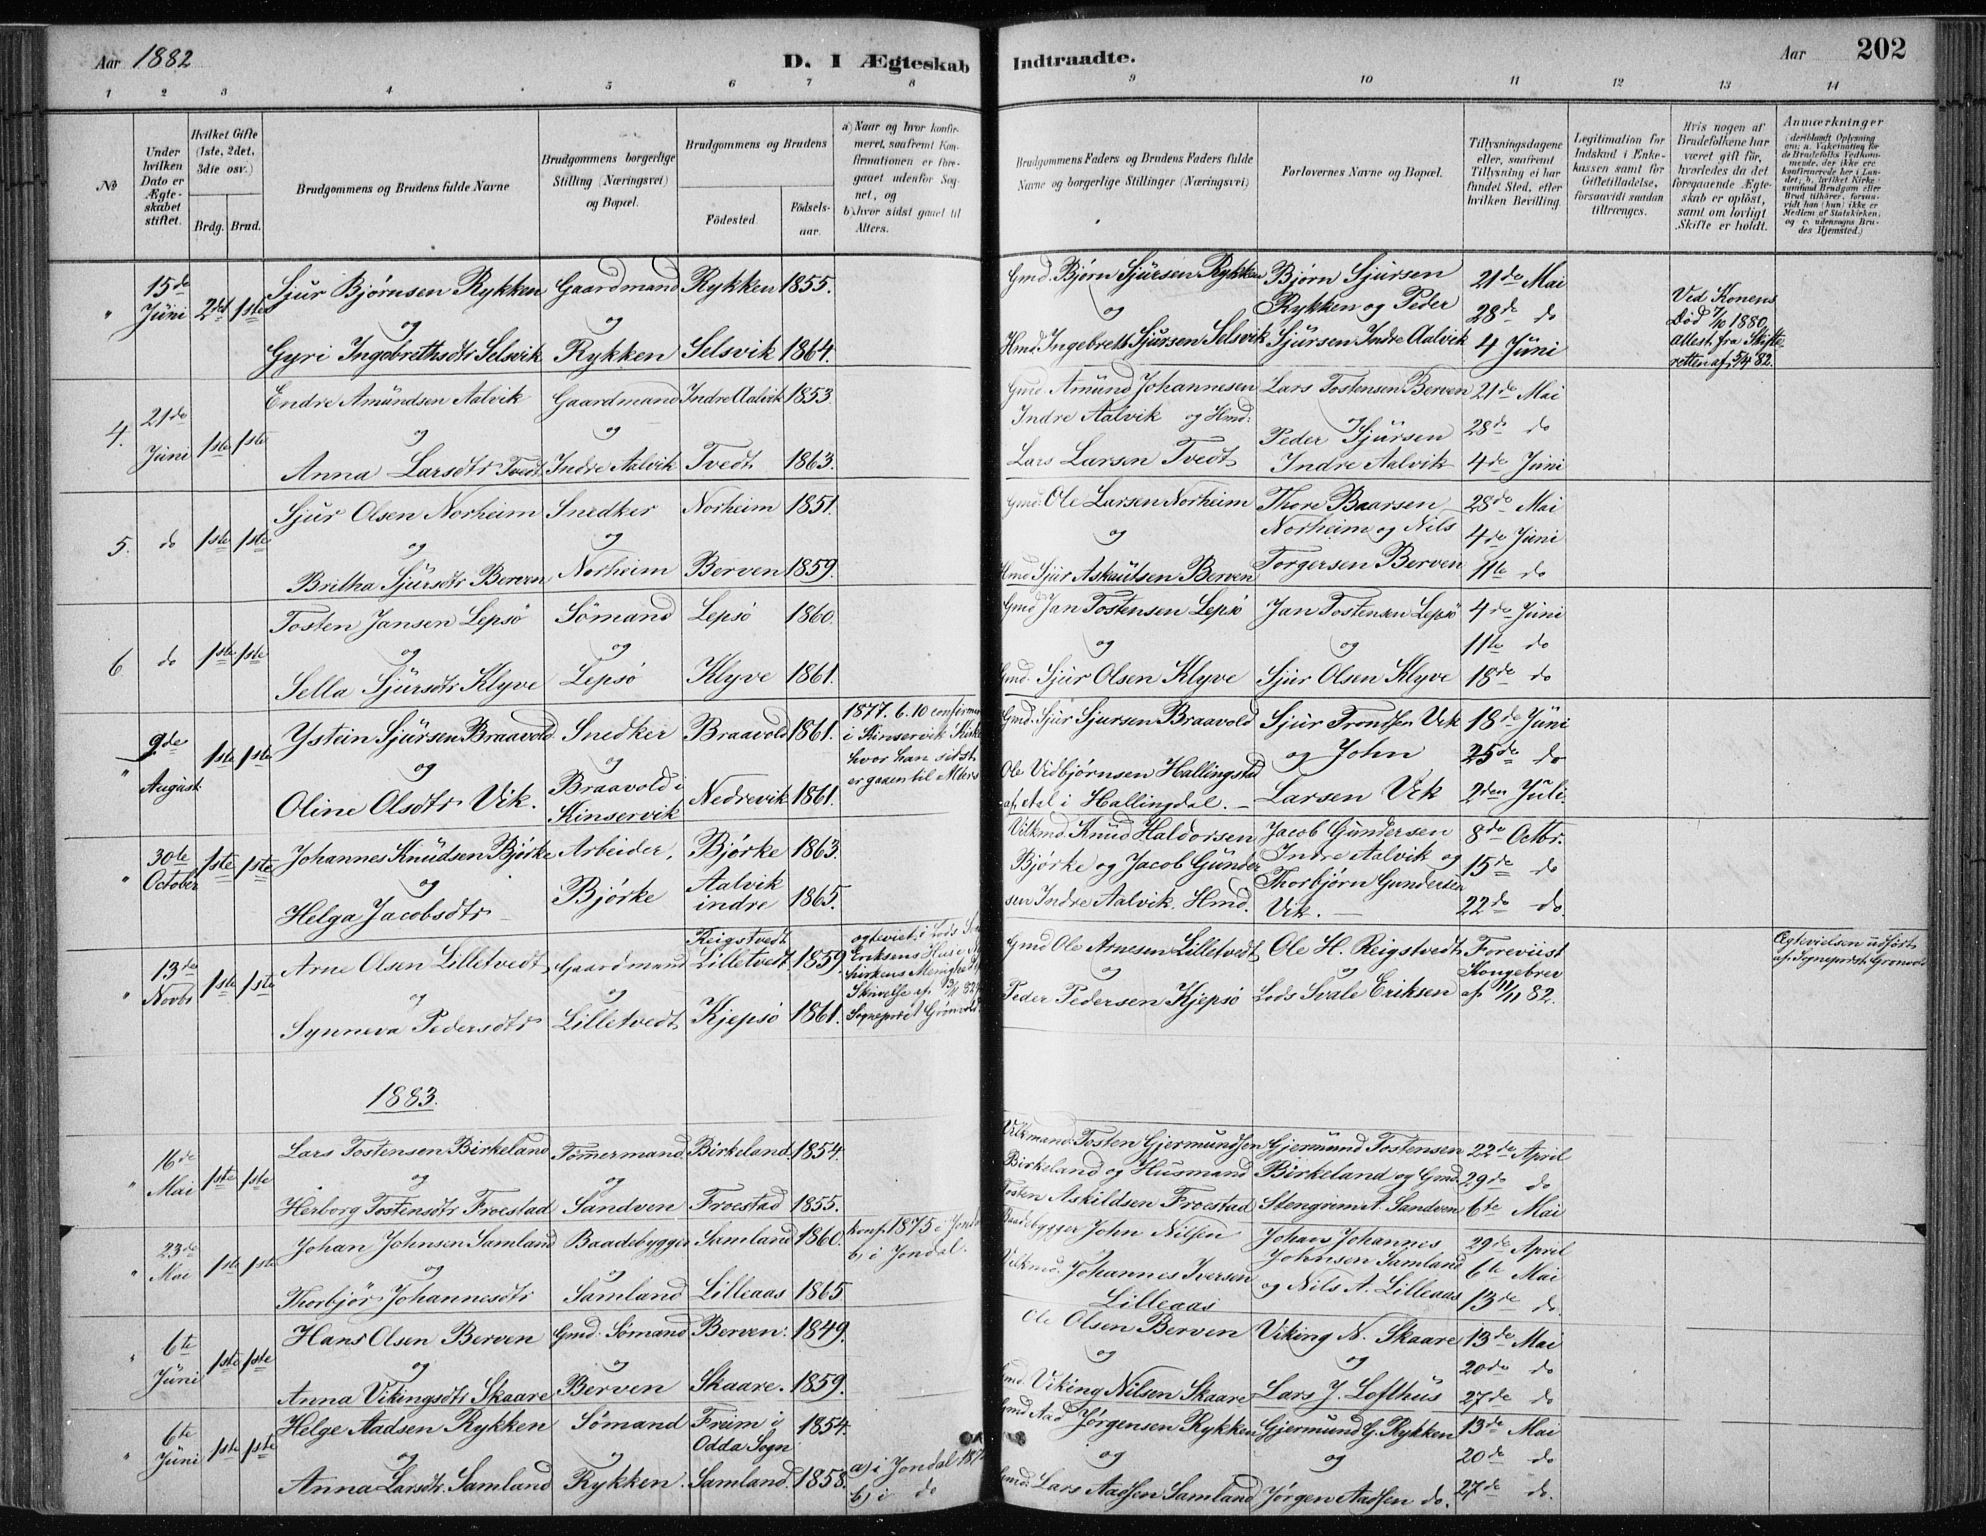 Aar 1882
D. I Ægteskab Indtraadte.
Aar 202
1 2 3 4 5 6 7 8 9 10 11 12 13 14
No
Under hvilken Dato er Ægteskabet stiftet.
Hvilket Gifte (1ste, 2det, 3die osv.)
Brdg. Brud.
Brudgommens og Brudens fulde Navne
Brudgommens borgerlige Stilling (Næringsvei) og Bopæl.
Brudgommens og Brudens
Fødested.
Fødselsaar.
a) Naar og hvor konfirmeret, saafremt Konfirmationen er foregaaet udenfor Sognet, og
b) hvor sidst gaaet til Alters.
Brudgommens Faders og Brudens Faders fulde Navne og borgerlige Stillinger (Næringsvei)
Forlovernes Navne og Bopæl.
Tillysningsdagene eller, saafremt Tillysning ei har fundet Sted, efter hvilken Bevilling.
Legitimation for Indskud i Enkekassen samt for Giftetilladelse, forsaavidt saadan tiltrænges.
Hvis nogen af Brudefolkene har været gift før, hvorledes da det foregaaende Ægteskab er opløst, samt om lovligt Skifte er holdt.
Anmærkninger (deriblandt Oplysning om: a. Vakcination for de Brudefolks Vedkommende, der ikke ere konfirmerede her i Landet; b. hvilket Kirkesamfund Brudgom eller Brud tilhører, forsaavidt han (hun) ikke er Medlem af Statskirken; og c. udensogns Brudes Hjemsted.)
" 15de Juni 2det 1ste
Sjur Bjørnsen Rykken Gaardmand Rykken 1855.
og og
Gyri Ingebrethsdtr Selsvik Rykken Selsvik 1864.
Gmd. Bjørn Sjursen Rykken Bjørn Sjursen 21de Mai
og Rykken og Peder 28de do
Hmd. Ingebreth Sjursen Selsvik Sjursen Indre Aalvik 4 Juni
Ved Konens
Død 7/10 1880,
attest fra Skifte
retten af 5/4 82.
4. 21de Juni 1ste 1ste
Endre Amundsen Aalvik Gaardmand Indre Aalvik 1853.
og og
Anna Larsdtr Tvedt Indre Aalvik Tvedt 1863.
Gmd. Amund Johannesen Lars Tostensen Berven 21de Mai
Indre Aalvik og Hmd: og 28de do
Lars Larsen Tvedt Peder Sjursen Indre Aalvik 4de Juni
5. do 1ste 1ste
Sjur Olsen Norheim Snedker Norheim 1851.
og og
Britha Sjursdtr Berven Norheim Berven 1859.
Gmd. Ole Larsen Norheim Thore Baarsen 28de Mai
og Norheim og Nils 4de Juni
Hmd Sjur Askautsen Berven Torgersen Berven 11te do
6 do 1ste 1ste
Tosten Jansen Lepsö Sömand Lepsö 1860.
og og
Sella Sjursdtr Klyve Lepsö Klyve 1861.
Gmd Jan Tostensen Lepsö Jan Tostensen Lepsö 4de Juni
og og 11te do
Gmd. Sjur Olsen Klyve Sjur Olsen Klyve 18de do
" 9de August 1ste 1ste
Ystein Sjursen Braavold Snedker Braavold 1861.
og og
Oline Olsdtr Vik. Braavold i Kinservik Nedrevik 1861.
1877. 6.10 confirmer
i Kinservik Kirke
hvor han sidst
er gaaen til Alters
Gmd. Sjur Sjursen Braavold Sjur Trondsen Vik 18de Juni
og John 25de do
Ole Vidbjørnsen Hallingstad
af Aal i Hallingdal. Larsen Vik 2den Juli
" 30te October 1ste 1ste
Johannes Knudsen Bjørke Arbeider, Bjørke 1863.
og
Helga Jacobsdtr Bjørke Aalvik indre 1865.
Vilkmd. Knud Haldorsen Jacob Gundersen 8de Octbr.
Bjørke og Jacob Gunder Indre Aalvik og 15de do
sen Indre Aalvik. Hmd. Thorbjørn Gundersen Vik. 22de do.
" 13de Novbr 1ste 1ste
Arne Olsen Lilletvedt Gaardmand Reigstvedt Lilletvedt 1859.
og og
Synneva Pedersdtr Lilletvedt Kjepsö 1861.
ægteviet i Lods
Eriksens Huse
Kirkens Menighed
Skrivelse af 13/11 82
Sognepræst Grönvold
Gmd Ole Arnesen Lilletvedt Ole H. Reigstvedt Foreviist
og og Kongebrev
Peder Pedersen Kjepsö Lods Svale Eriksen af 11/11 82.
Ægtevielsen udført
af Sogneprst. Grønvold
1883.
" 16de Mai 1ste 1ste
Lars Tostensen Birkeland Tømmermand Birkeland. 1854.
og og
Herborg Tostensdtr Froestad Sandven Froestad 1855.
Vilkmand. Tosten Gjermundsen Gjermund Tostensen 22de April
Birkeland og Husmand Birkeland og Gmd 29de do
Tosten Askildsen Froestad Stengrim A. Sandven 6te Mai
" 23de Mai 1ste 1ste
Johan Johnsen Samland Baadebygger Samland 1860.
og og
Thorbjör Johannesdtr Samland Lilleaas 1865
konf. 1875 i Jondal
b, i Jondal.
Baadebygger John Nilsen Johans Johannes 29de April
Vilkmd. Johannes Iversen Johnsen Samland 6te Mai
Lilleaas og Nils A. Lilleaas 13de do
" 6te Juni 1ste 1ste
Hans Olsen Berven Gmd. Sömand Berven: 1849.
og og
Anna Vikingsdtr Skaare Berven Skaare. 1859.
Ole Olsen Berven Viking N. Skaare 13de Mai
og og 20de do
Gmd. Viking Nilsen Skaare Lars J. Lofthus 27de do
" 6te Juni 1ste 1ste
Helge Aadsen Rykken Sömand Freim i Odda Sogn 1854.
og og
Anna Larsdtr. Samland Rykken. Samland. 1858.
a) i Jondal
b) i do
Gmd Aad Jørgensen Rykken Gjermund G. Rykken 13de Mai
og og 20de do
Gmd. Lars Aadsen Samland Jørgen Aadsen do. 27de do.